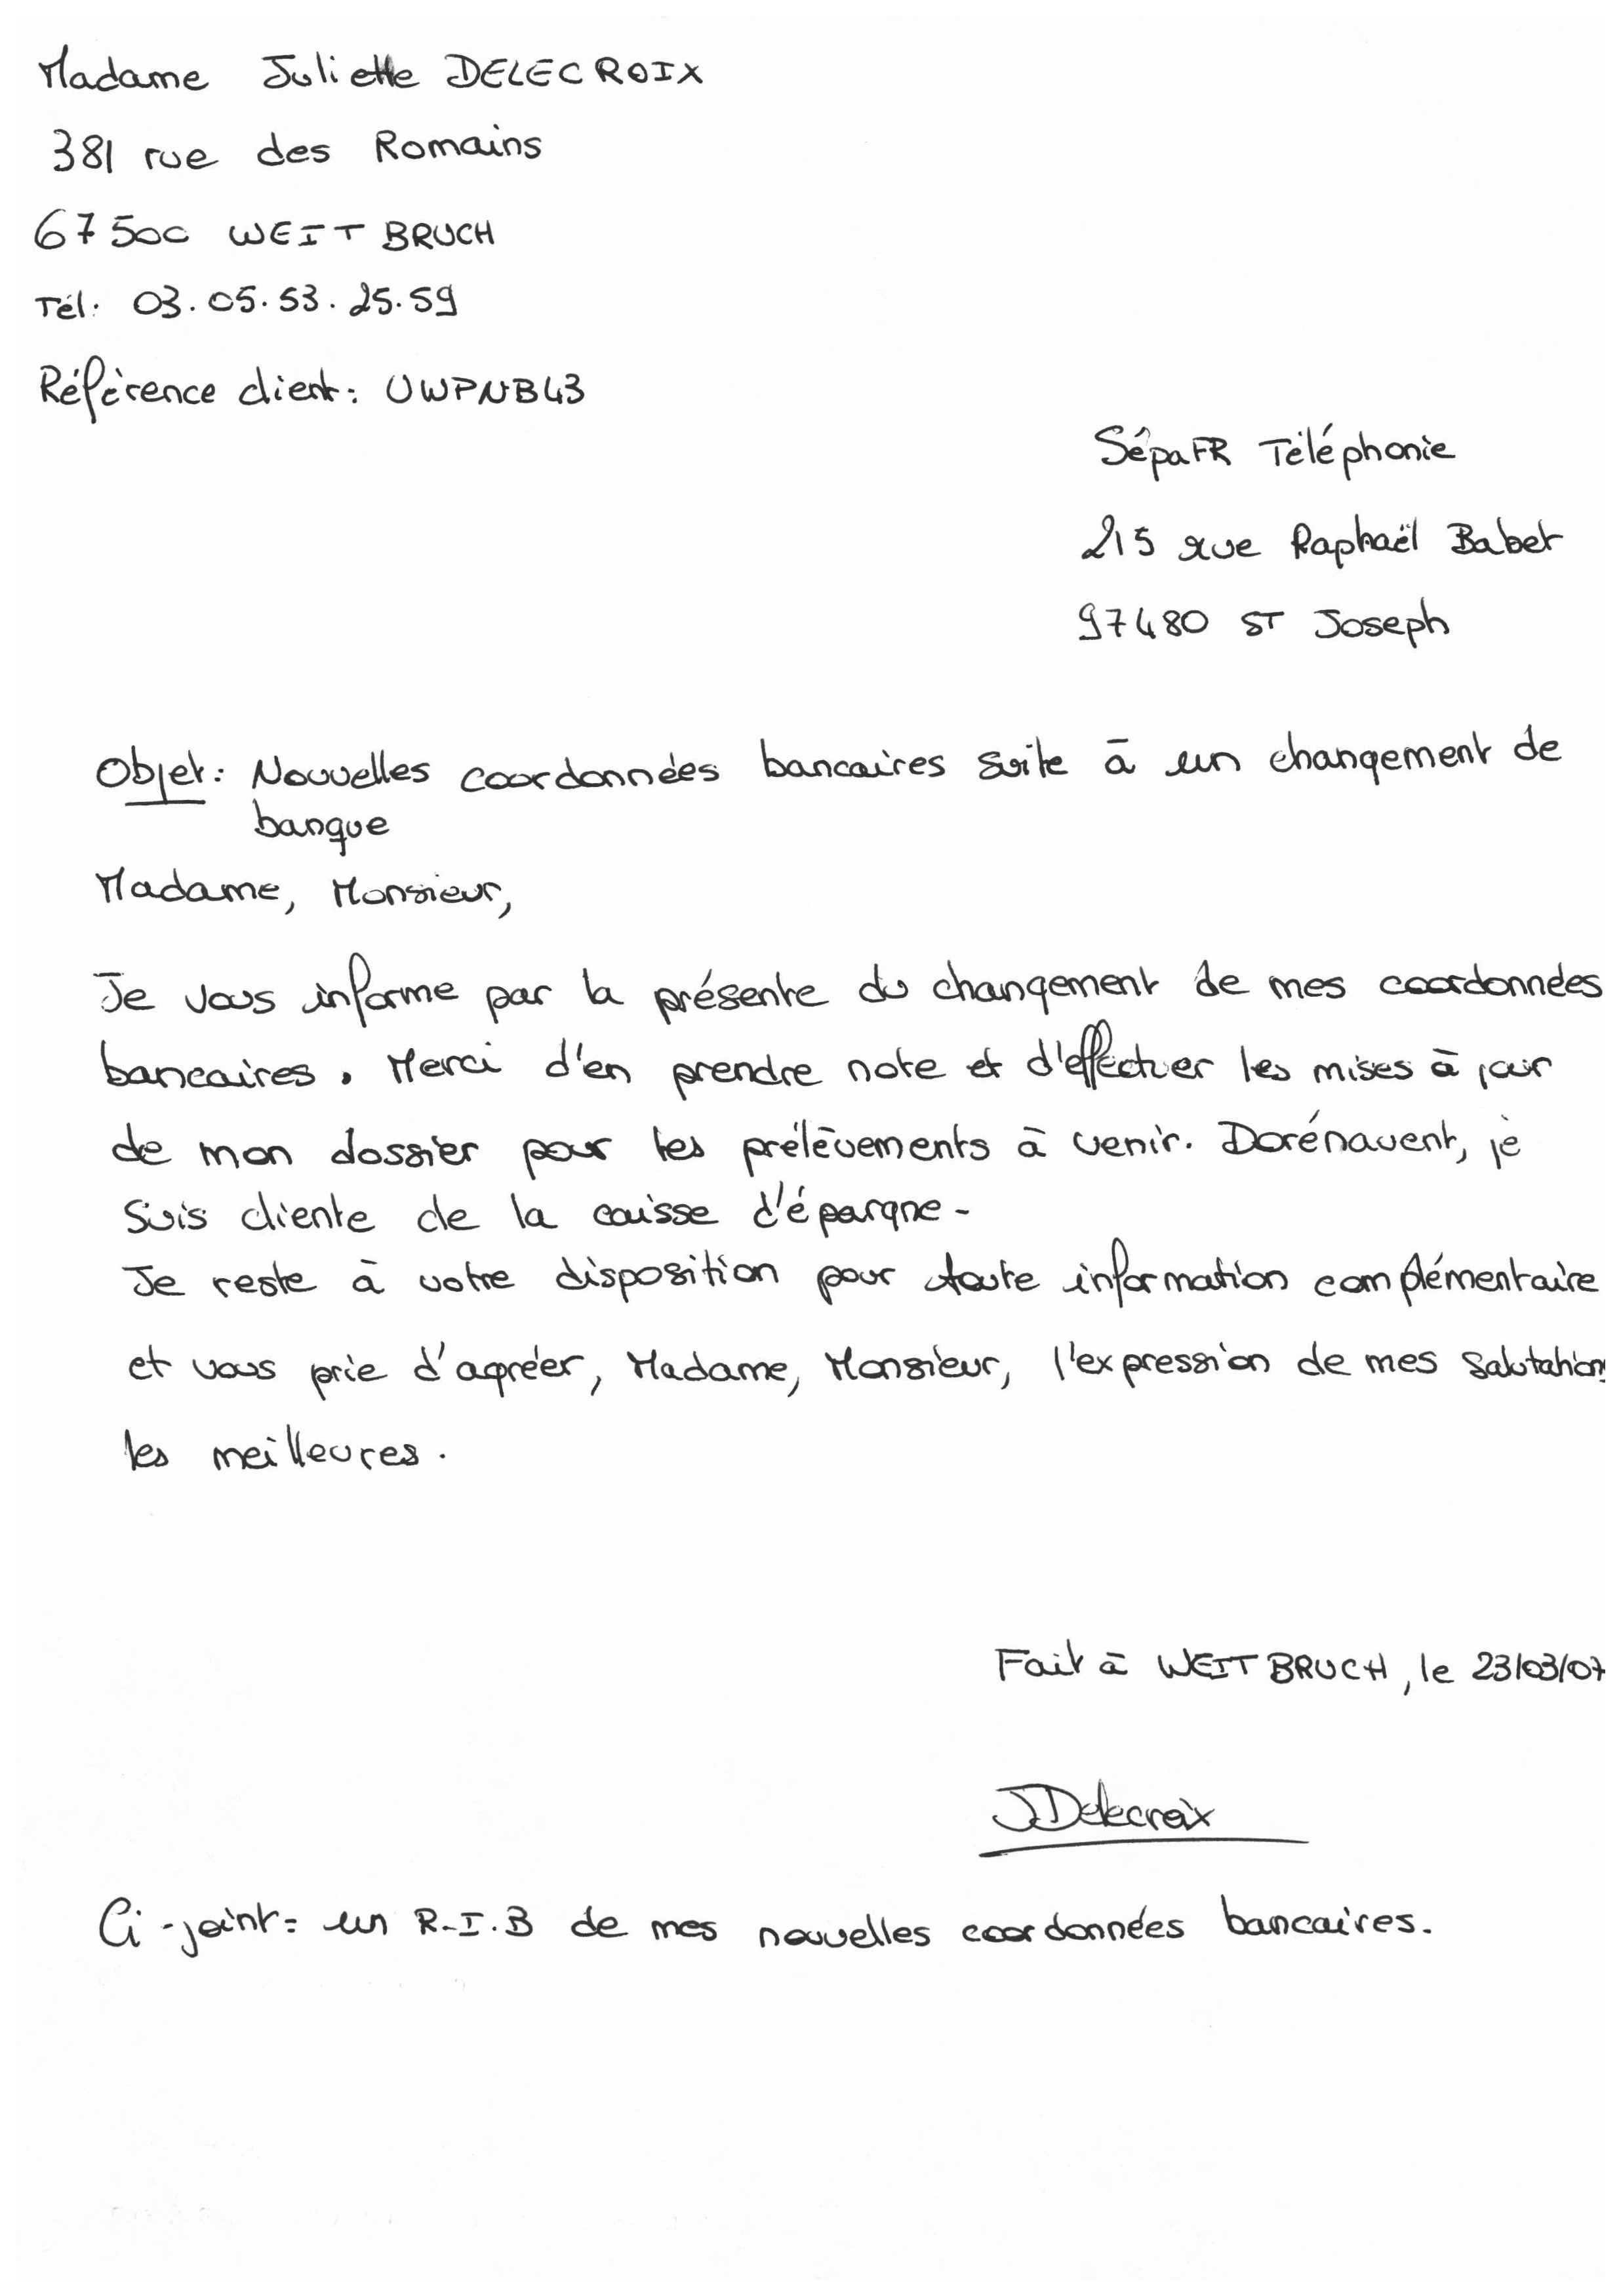 Madame Juliette DELECROIX
381 rue des Romains
67500 WEITBRUCH
Tél: 03.05.53.25.59
Référence client: UWPNB43
SépaFR Téléphonie
215 rue Raphaël Babet
97480 ST Joseph
Objet: Nouvelles coordonnées bancaires suite à un changement de
banque
Madame, Monsieur,
Je vous informe par la présente du changement de mes coordonnées
bancaires. Merci d'en prendre note et d'effectuer les mises à jour
de mon dossier pour les prélèvements à venir. Dorénavent, je
suis cliente de la caisse d'épargne.
Je reste à votre disposition pour toute information complémentaire
et vous prie d'agréer, Madame, Monsieur, l'expression de mes salutations
les meilleures.
Fait à WEITBRUCH, le 23/03/07
JDelecroix
Ci-joint: un R.I.B de mes nouvelles coordonnées bancaires.